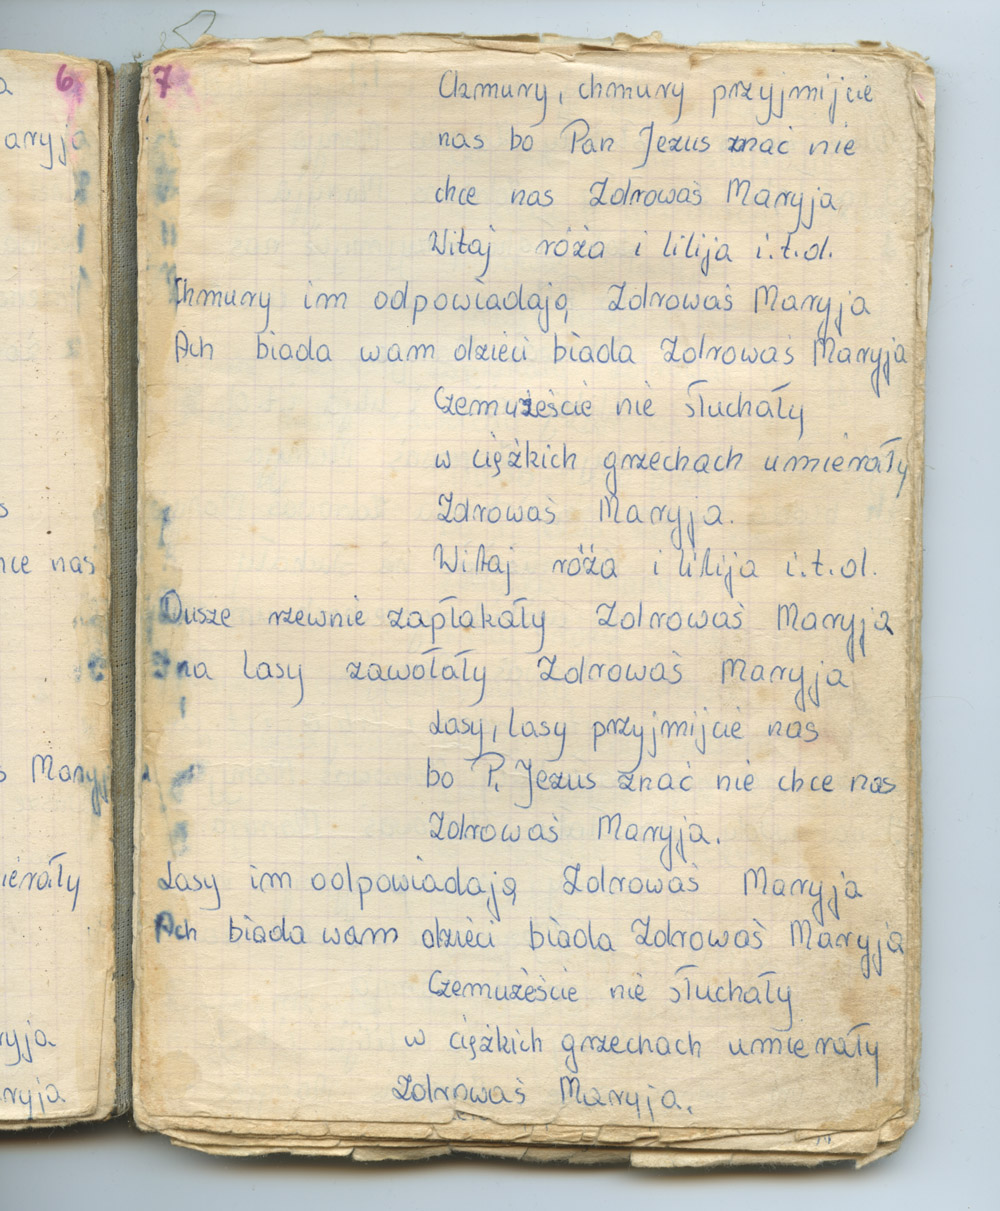 6
aryja
nce nas
s Maryj
ierały
ryja
ryja.
7
Chmury, chmury przyjmijcie
nas bo Pan Jezus znać nie
chce nas Zdrowaś Maryja
Witaj róża i lilija i.t.d.
Chmury im odpowiadają Zdrowaś Maryja
Ach biada wam dzieci biada Zdrowaś Maryja
Czemużeście nie słuchały
w ciężkich grzechach umierały
Zdrowaś Maryja.
Witaj róża i lilija i.t.d.
Dusze rzewnie zapłakały Zdrowaś Maryja
na lasy zawołały Zdrowaś Maryja
Lasy, lasy przyjmijcie nas
bo P. Jezus znać nie chce nas
Zdrowaś Maryja.
Lasy im odpowiadają Zdrowaś Maryja
Ach biada wam dzieci biada Zdrowaś Maryja
Czemużeście nie słuchały
w ciężkich grzechach umierały
Zdrowaś Maryja.